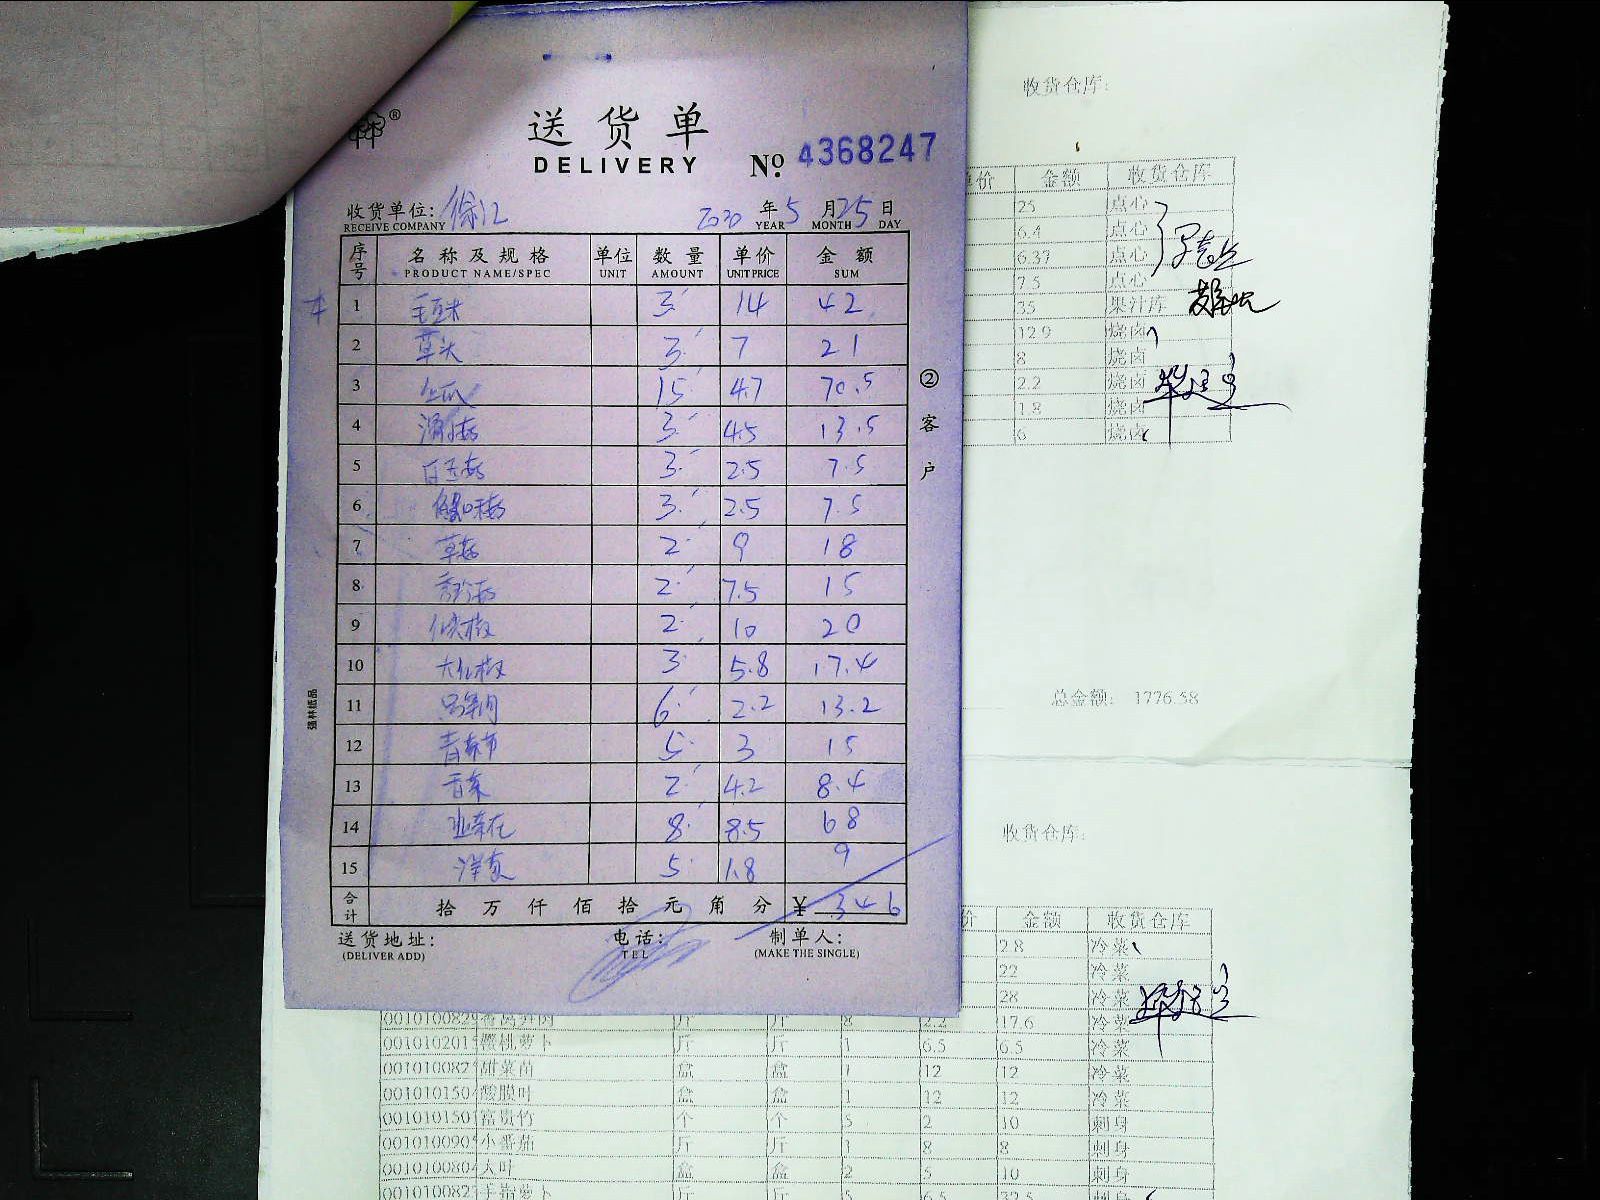 ®
送货单
DELIVERY
№ 4368247
收货单位: 徐汇 2020 年 5 月 25 日
RECEIVE COMPANY YEAR MONTH DAY
序号 名称及规格 单位 数量 单价 金额
PRODUCT NAME/SPEC UNIT AMOUNT UNIT PRICE SUM
1 毛豆米 3 14 42
2 草头 3 7 21
3 15 4.7 70.5
4 滑菇 3 4.5 13.5
5 白玉菇 3 2.5 7.5
6 蟹味菇 3 2.5 7.5
7 草菇 2 9 18
8 秀珍菇 2 7.5 15
9 2 10 20
10 大红椒 3 5.8 17.4
11 6 2.2 13.2
12 5 3 15
13 香菜 2 4.2 8.4
14 韭菜花 8 8.5 68
15 洋葱 5 1.8 9
合计 拾 万 仟 佰 拾 元 角 分 ¥ 346
送货地址: 电话: 制单人:
(DELIVER ADD) TEL (MAKE THE SINGLE)
② 客户
强林纸品
收货仓库:
单价 金额 收货仓库
25 点心
6.4 点心
6.37 点心
7.5 点心
35 果汁库
12.9 烧卤
8 烧卤
2.2 烧卤
18 烧卤
6 烧卤
总金额: 1776.58
收货仓库:
价 金额 收货仓库
2.8 冷菜
22 冷菜
28 冷菜
斤 斤 8 2.2 17.6 冷菜
001010201 樱桃萝卜 斤 斤 1 6.5 6.5 冷菜
001010082 甜菜苗 盒 盒 1 12 12 冷菜
001010150 酸膜叶 盒 盒 1 12 12 冷菜
001010150 富贵竹 个 个 5 2 10 刺身
001010090 小番茄 斤 斤 1 8 8 刺身
001010080 大叶 盒 盒 2 5 10 刺身
001010082 手指萝卜 斤 斤 5 6.5 32.5 刺身